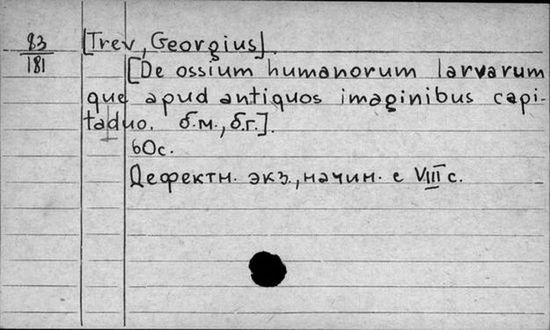 83
181
[Trev, Georgius].
[De ossium humanorum larvarum
que apud antiquos imaginibus capi-
taduo. б.м., б.г.].
60с.
Дефектн. экз., начин. с VIII с.